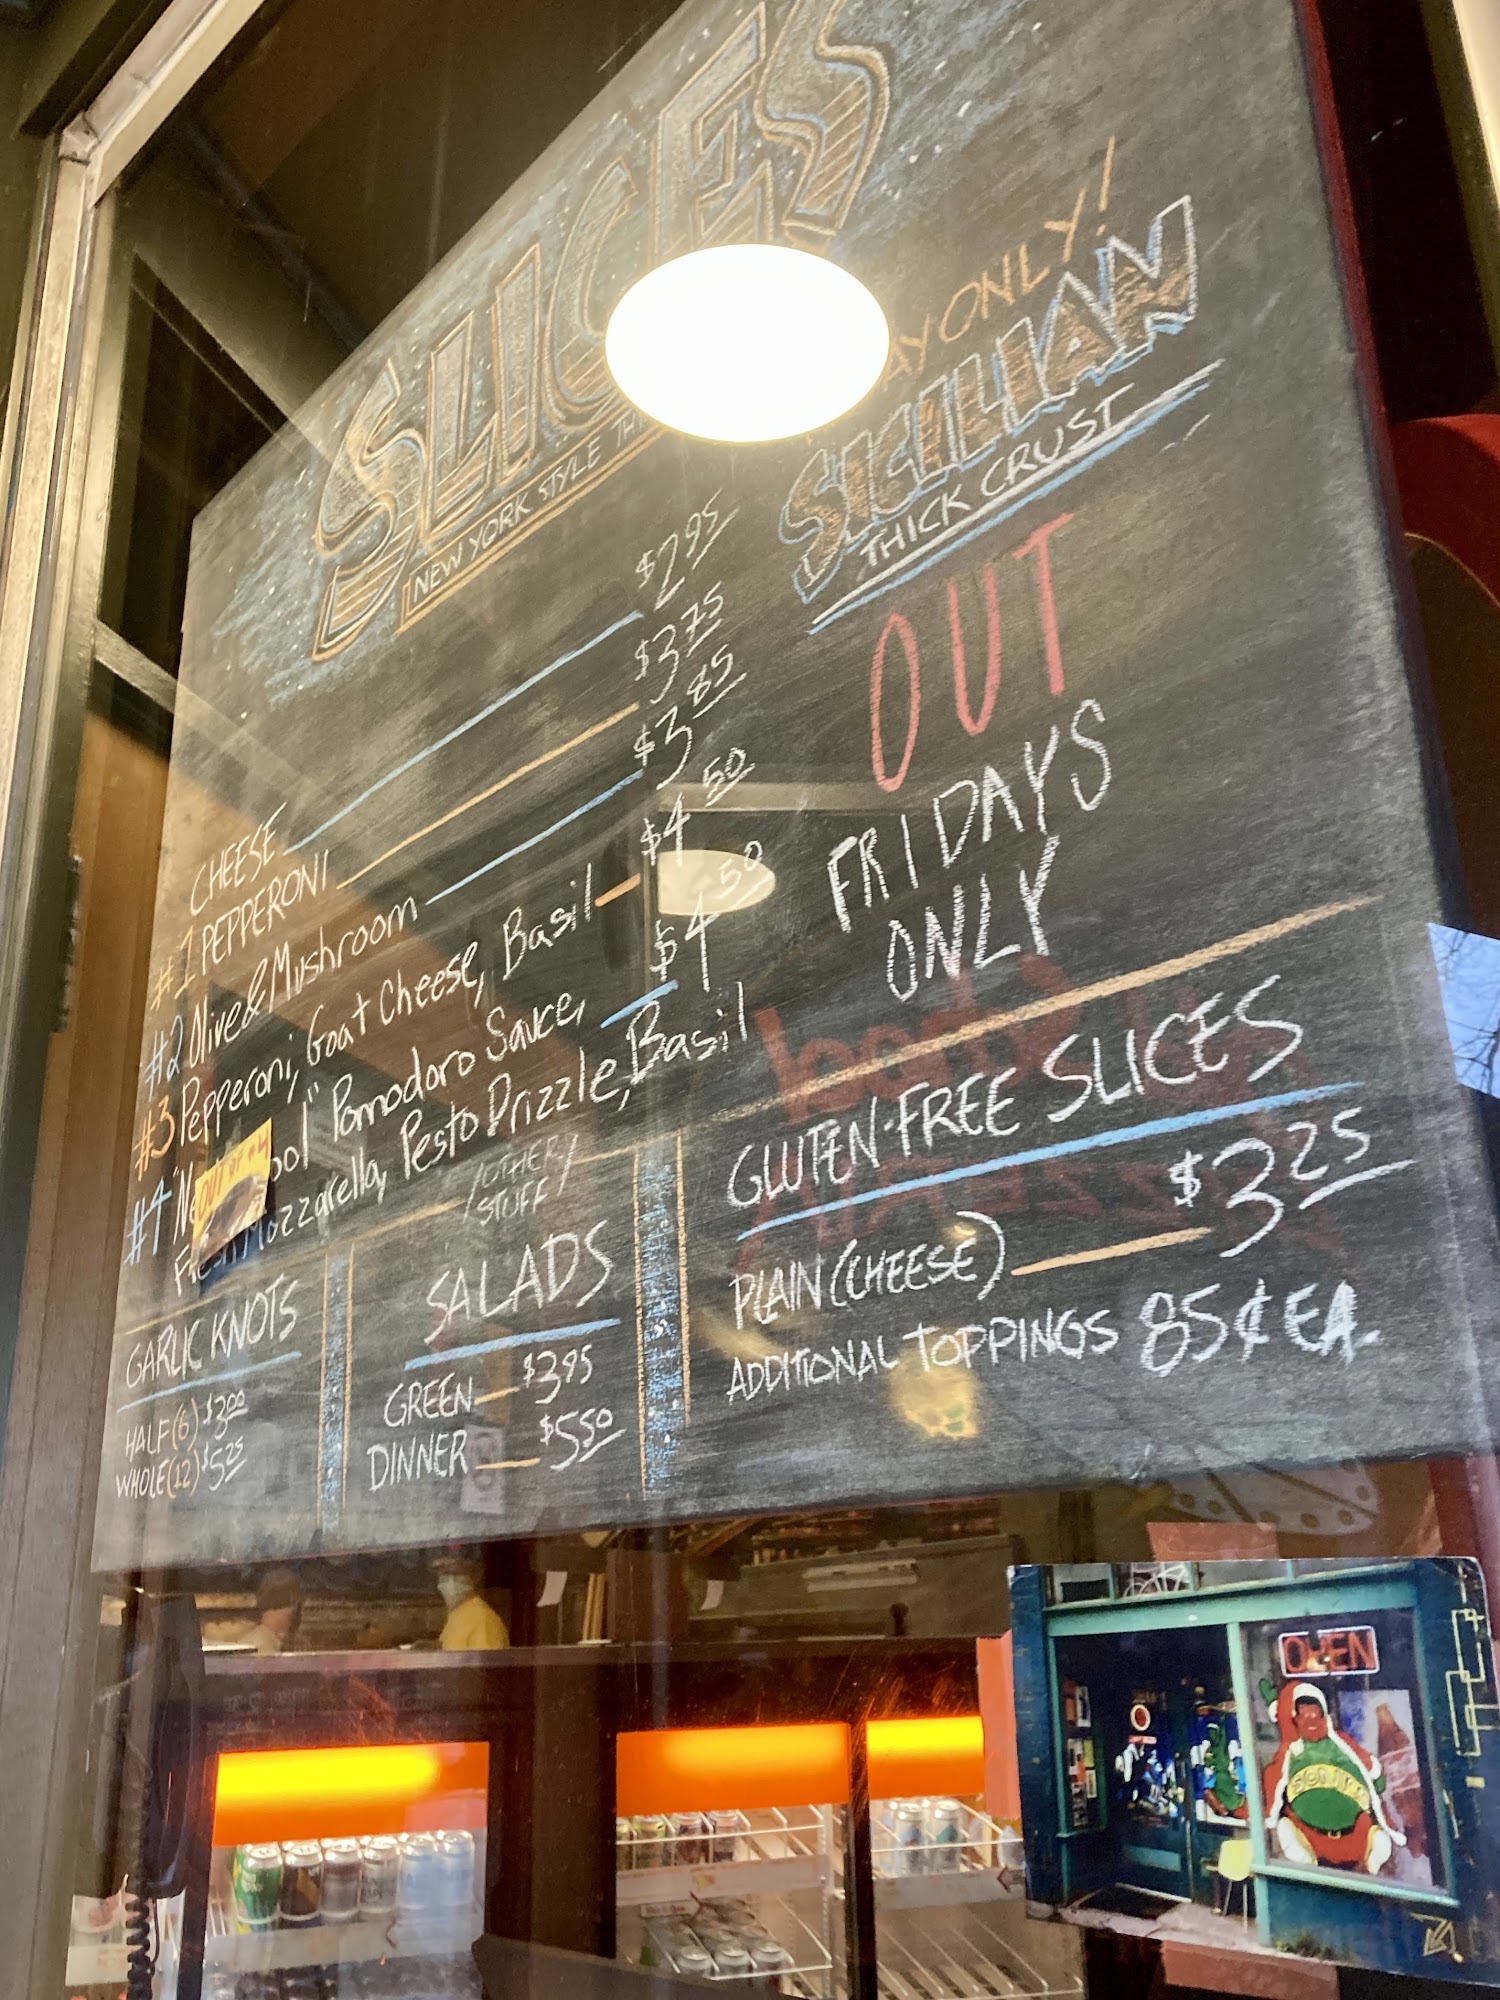 SLICES
NEW YORK STYLE
CHEESE $2.95
#1 PEPPERONI $3.75
#2 Olive & Mushroom $3.85
#3 Pepperoni, Goat Cheese, Basil $4.50
#4 Pomodoro Sauce, $4.50
Mozzarella, Pesto Drizzle, Basil
OUT OF #4
ONLY!
SICILIAN
THICK CRUST
OUT
FRIDAYS
ONLY
/OTHER/
STUFF/
GARLIC KNOTS
HALF(6) $3.00
WHOLE(12) $5.25
SALADS
GREEN $3.95
DINNER $5.50
GLUTEN-FREE SLICES
PLAIN (CHEESE) $3.25
ADDITIONAL TOPPINGS 85¢ EA.
OPEN